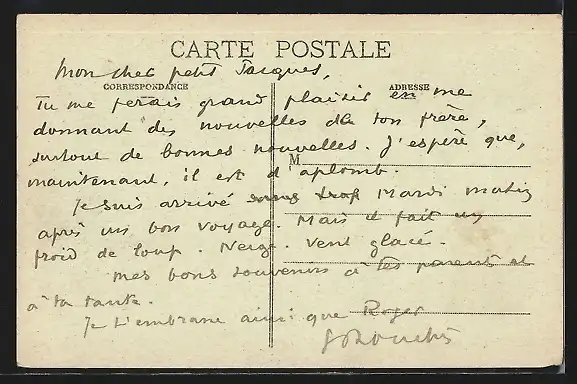 CARTE POSTALE
Mon cher petit Jacques,
CORRESPONDANCE
ADRESSE
Tu me ferais grand plaisir en me
donnant des nouvelles de ton frère,
surtout de bonnes nouvelles. J'espère que,
M
maintenant, il est d'aplomb.
Je suis arrivé sans trop Mardi matin
après un bon voyage. Mais il fait un
froid de loup. Neige. Vent glacé.
Mes bons souvenirs à tes parents et
à ta tante.
Je t'embrasse ainsi que Roger